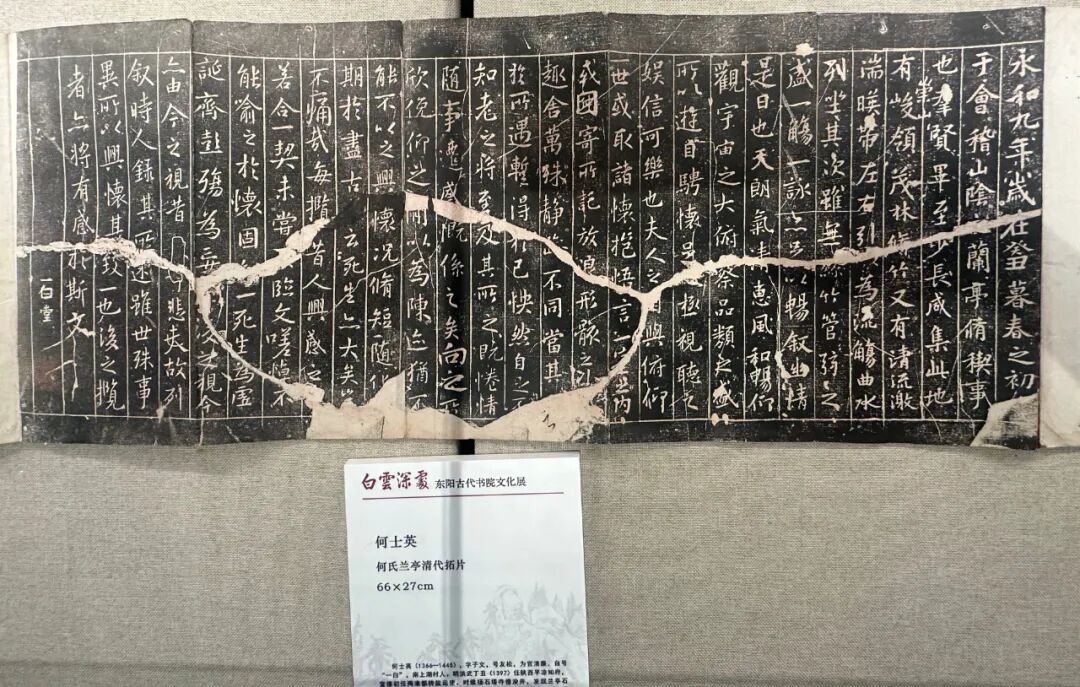 永和九年歲在癸丑暮春之初
于會稽山陰之蘭亭脩稧事
也羣賢畢至少長咸集此地
有峻領茂林脩竹又有清流激
湍暎帶左右引以為流觴曲水
列坐其次雖無絲竹管弦之
盛一觴一詠亦足以暢叙幽情
是日也天朗氣清惠風和暢仰
觀宇宙之大俯察品類之盛
所以遊目騁懷足以極視聽之
娛信可樂也夫人之相與俯仰
一世或取諸懷抱悟言一室之内
或因寄所託放浪形骸之外
趣舍萬殊静躁不同當其
於所遇蹔得於己怏然自足不
知老之將至及其所之既惓情
隨事遷感慨係之矣向之所
欣俛仰之間以為陳迹猶不
能不以之興懷況脩短隨化
期於盡古人云死生亦大矣豈
不痛哉每攬昔人興感之
若合一契未嘗不臨文嗟悼不
能喻之於懷固知一死生為虛
誕齊彭殤為妄作後之視今
亦由今之視昔悲夫故列
叙時人録其所述雖世殊事
異所以興懷其致一也後之攬
者亦將有感於斯文
白雲深處 东阳古代书院文化展
何士英
何氏兰亭清代拓片
66×27cm
何士英（1366—1445），字子文，号友松，为官清廉，自号
“一白”，南上湖村人，明洪武丁丑（1397）任陕西平凉知府，
宣德初任两淮都转盐运史，时维扬石塔寺僧浚井，发现兰亭石